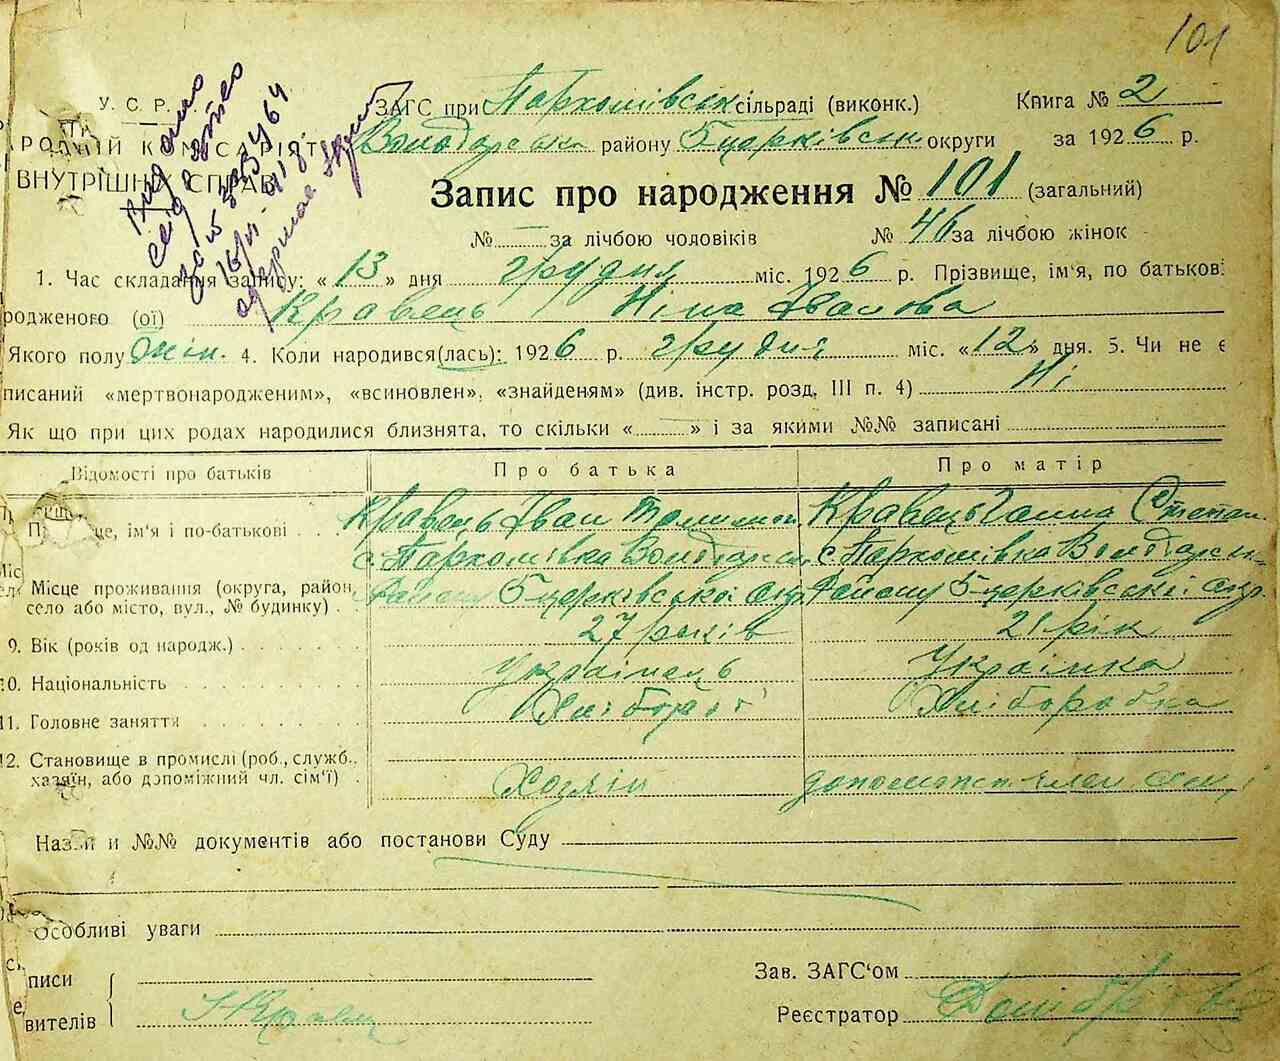 101
У. С. Р. ЗАГС при Пархомівськ сільраді (виконк.) Книга № 2
РОДНІЙ КОМІСАРІЯТ Володарськ району Бцерківськ округи за 1926 р.
ВНУТРІШНІХ СПРАВ Запис про народження № 101 (загальний)
№ за лічбою чоловіків № 46 за лічбою жінок
1. Час складання запису: «13» дня грудня міс. 1926 р. Прізвище, ім'я, по батькові
родженого (ої) Кравець Ніна Іванова
Якого полу жін. 4. Коли народився(лась): 1926 р. грудня міс. «12» дня. 5. Чи не є
писаний «мертвонародженим», «всиновлен», «знайденям» (див. інстр. розд. III п. 4) Ні
Як що при цих родах народилися близнята, то скільки « » і за якими №№ записані
Відомості про батьків Про батька Про матір
ім'я і по-батькові Кравець Іван Кравець Ганна Степан
с. Пархомівка Володарськ с. Пархомівка Володарськ
Місце проживання (округа, район, району Бцерківської окр. району Бцерківської окр.
село або місто, вул., № будинку)
9. Вік (років од народж.) 27 років 21 рік
10. Національність Українець Українка
11. Головне заняття Хлібороб Хлiборобка
12. Становище в промислі (роб., служб.,
хазяїн, або допоміжний чл. сім'ї) Хозяїн допоможн член сім'ї
Назви и №№ документів або постанови Суду
Особливі уваги
писи Зав. ЗАГС'ом
вителів Реєстратор